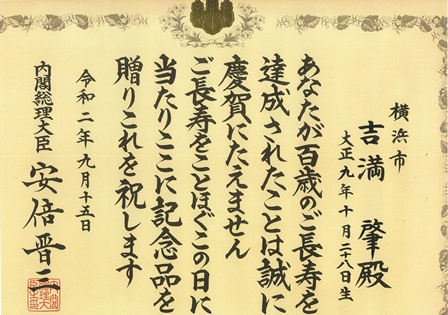 横浜市
吉満 肇殿
大正九年十月二十八日生
あなたが百歳のご長寿を
達成されたことは誠に
慶賀にたえません
ご長寿をことほぐこの日に
当たりここに記念品を
贈りこれを祝します
令和二年九月十五日
内閣総理大臣 安倍晋三